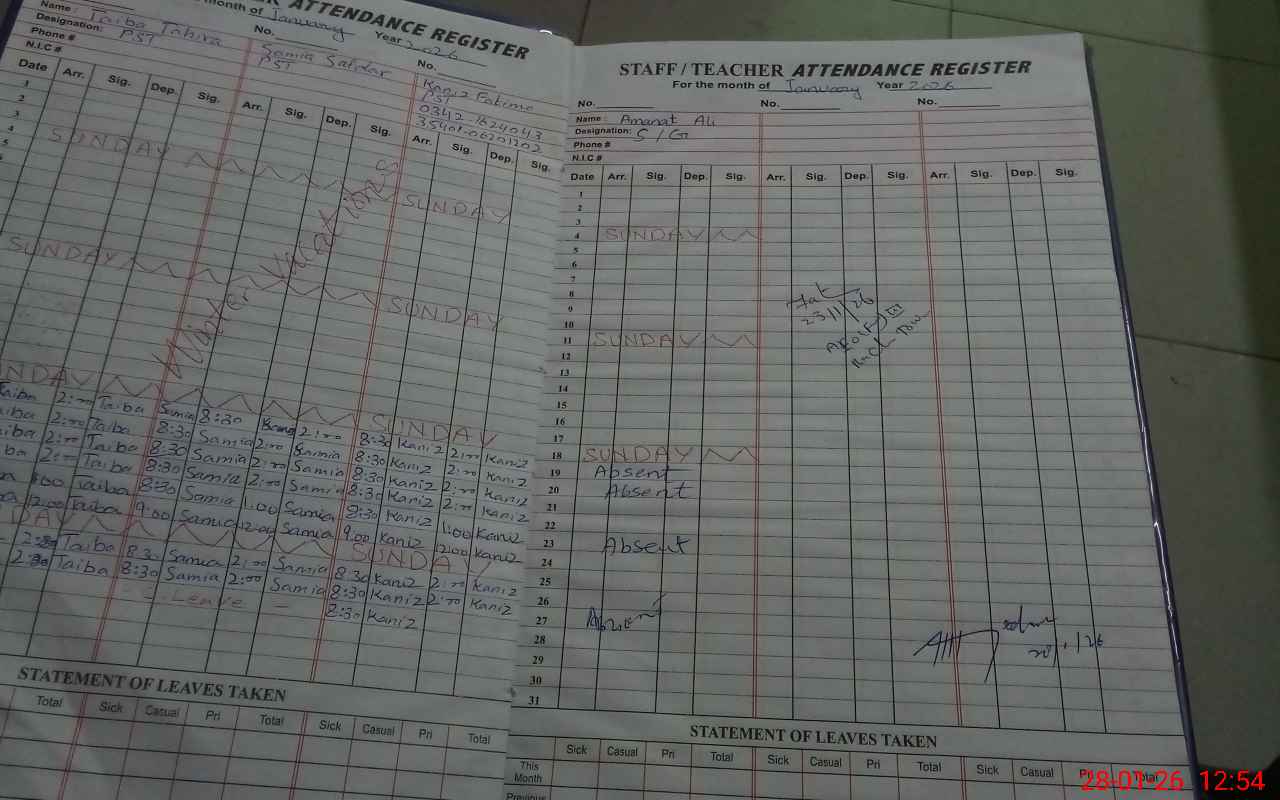 ATTENDANCE REGISTER
month of January Year 2026
Name: Taiba Tahira
Designation: PST
Phone #
N.I.C #
No.
Samia Safdar
PST
No.
Kaniz Fatima
PST
0342-1624043
35401-0620120 2
Date Arr. Sig. Dep. Sig. Arr. Sig. Dep. Sig. Arr. Sig. Dep. Sig.
1
2
3
4
5
SUNDAY SUNDAY
Winter Vacations
SUNDAY SUNDAY
SUNDAY
Taiba 2:00 Taiba Samia 8:30 2:00 8:30 Kaniz 2:00 Kaniz
Taiba 2:00 Taiba 8:30 Samia 2:00 Samia 8:30 Kaniz 2:00 Kaniz
Taiba 2:00 Taiba 8:30 Samia 2:00 Samia 8:30 Kaniz 2:00 Kaniz
Taiba 8:30 Samia 2:00 Samia 8:30 Kaniz 2:00 Kaniz
Taiba 8:30 Samia 1:00 Samia 8:30 Kaniz 1:00 Kaniz
12:00 Taiba 9:00 Samia 12:00 Samia 9:00 Kaniz 12:00 Kaniz
SUNDAY
Taiba 8:30 Samia 2:00 Samia 8:30 Kaniz 2:00 Kaniz
Taiba 8:30 Samia 2:00 Samia 8:30 Kaniz 2:00 Kaniz
Leave 8:30 Kaniz
STATEMENT OF LEAVES TAKEN
Total Sick Casual Pri Total Sick Casual Pri Total
STAFF / TEACHER ATTENDANCE REGISTER
For the month of January Year 2026
No. No. No.
Name: Amanat Ali
Designation: S/G
Phone #
N.I.C #
Date Arr. Sig. Dep. Sig. Arr. Sig. Dep. Sig. Arr. Sig. Dep. Sig.
1
2
3
4 SUNDAY
5
6
7
8
9
10
11 SUNDAY
12
13
14
15
16
17
18 SUNDAY
19 Absent
20 Absent
21
22
23 Absent
24
25
26
27 Absent
28
29
30
31
23/1/26
STATEMENT OF LEAVES TAKEN
Sick Casual Pri Total Sick Casual Pri Total Sick Casual Pri Total
This Month
Previous
28-01-26 12:54